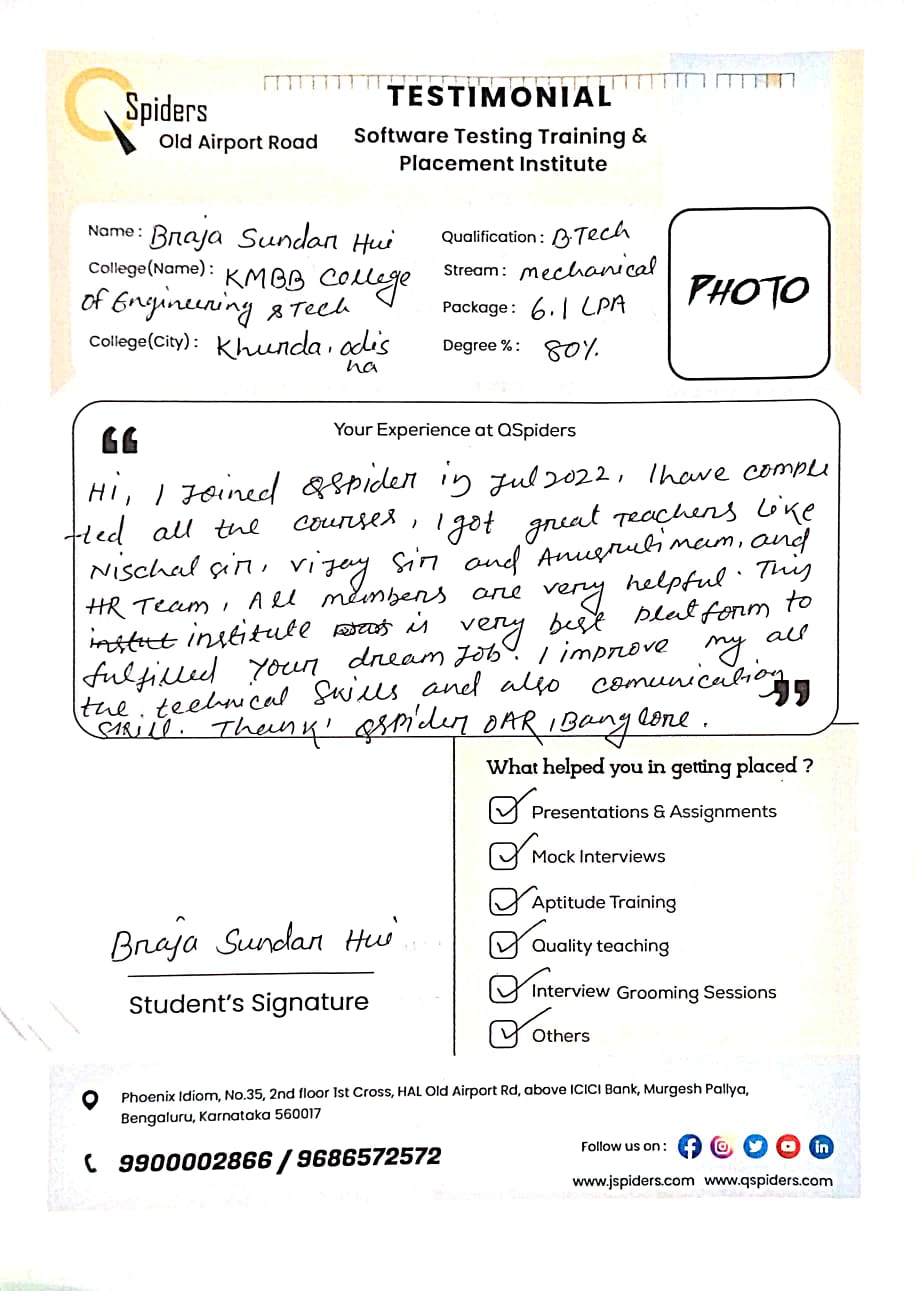 TESTIMONIAL
QSpiders
Old Airport Road
Software Testing Training &
Placement Institute
Name : Braja Sundar Hui
College(Name) : KMBB College
of Engineering & Tech
College(City) : Khurda, odis
ha
Qualification : B.Tech
Stream : mechanical
Package : 6.1 LPA
Degree % : 80%
PHOTO
Your Experience at QSpiders
Hi, I Joined QSpider in Jul 2022, I have comple
-ted all the courses, I got great Teachers Like
Nischal sir, vijay Sir and mam, and
HR Team, All members are very helpful. This
institute is very best platform to
fulfilled your dream Job. I improve my all
the technical Skills and also comunication
skill. Thank' QSpider OAR, Banglore.
What helped you in getting placed ?
Presentations & Assignments
Mock Interviews
Aptitude Training
Quality teaching
Interview Grooming Sessions
Others
Braja Sundar Hui
Student's Signature
Phoenix Idiom, No.35, 2nd floor 1st Cross, HAL Old Airport Rd, above ICICI Bank, Murgesh Pallya,
Bengaluru, Karnataka 560017
9900002866 / 9686572572
Follow us on :
www.jspiders.com www.qspiders.com